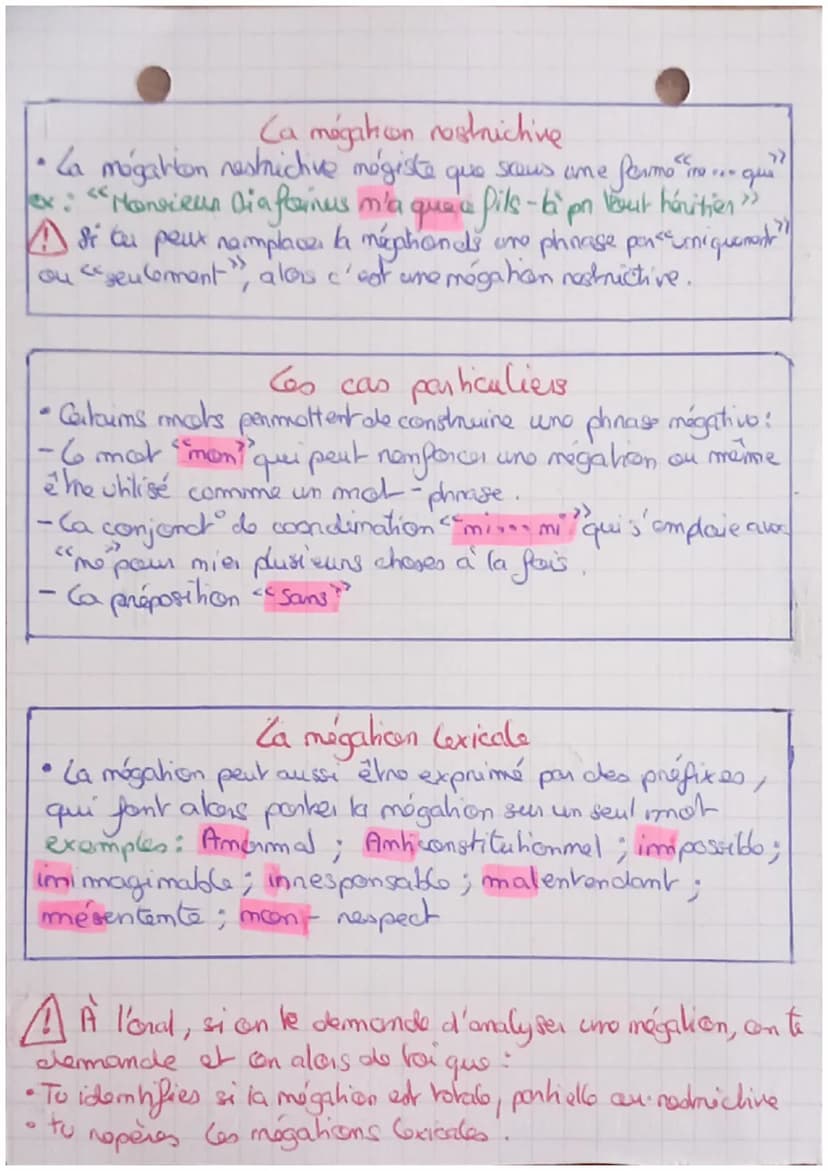 La négation restrictive
• La négation restrictive n'existe que sous une forme "ne ... que"
ex : "Monsieur Diafoirus n'a que ce fils-là pour tout héritier"
⚠ Si tu peux remplacer la négation ds une phrase par "uniquement"
ou "seulement", alors c'est une négation restrictive.
Les cas particuliers
• Certains mots permettent de construire une phrase négative :
- Le mot "non" qui peut renforcer une négation ou même
être utilisé comme un mot-phrase.
- La conjonct° de coordination "ni ... ni" qui s'emploie avec
"ne" pour nier plusieurs choses à la fois.
- La préposition "sans"
La négation lexicale
• La négation peut aussi être exprimé par des préfixes,
qui font alors porter la négation sur un seul mot
exemples : Anormal ; Anticonstitutionnel ; impossible ;
inimaginable ; irresponsable ; malentendant ;
mésentente ; non-respect
⚠ À l'oral, si on te demande d'analyser une négation, on te
demande et on alors de toi que :
• Tu identifies si la négation est totale, partielle ou restrictive
• tu repères les négations lexicales.